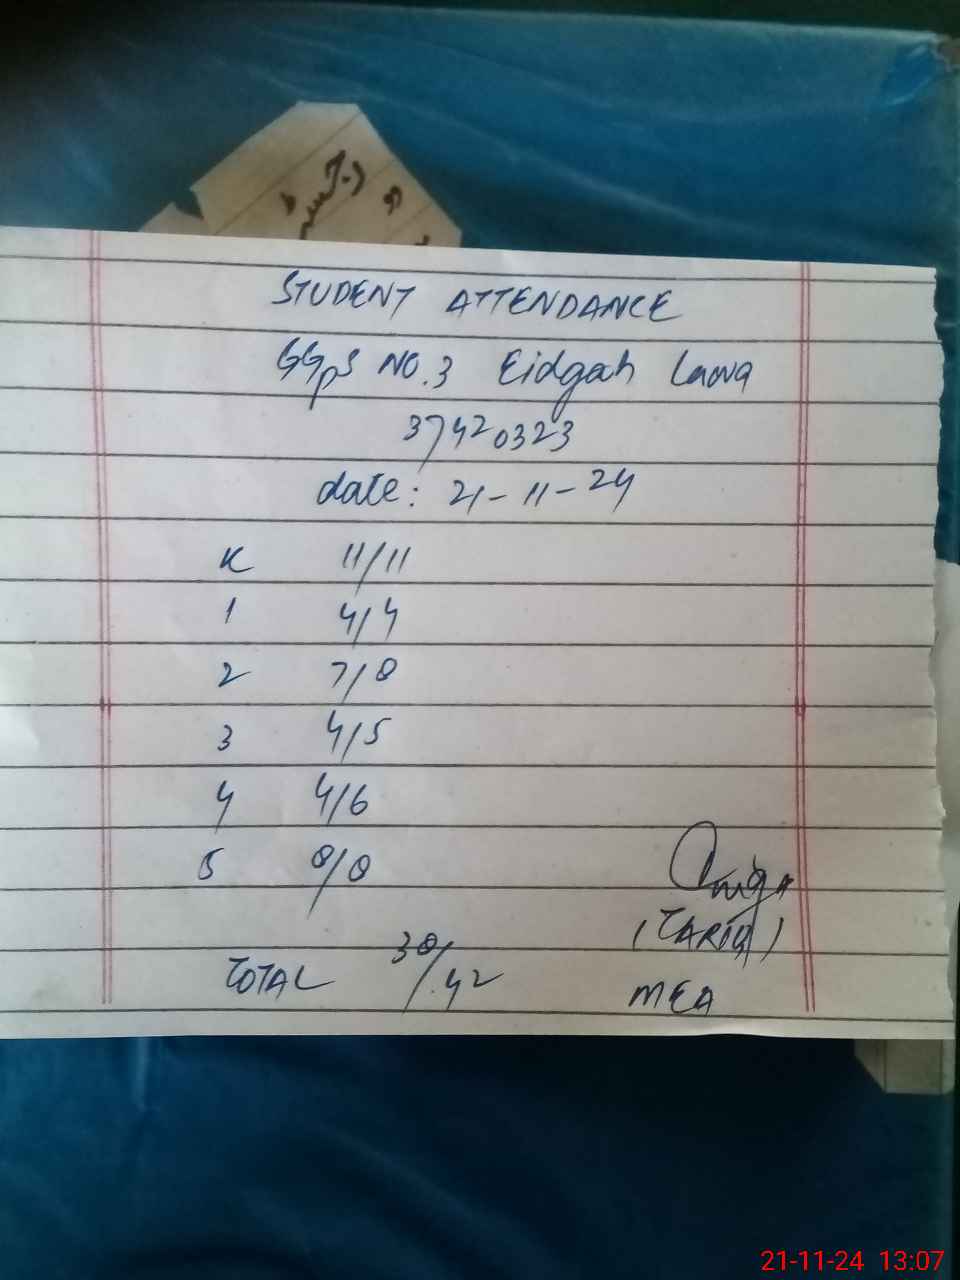 STUDENT ATTENDANCE
GGPS NO.3 Eidgah Lawa
37420323
date: 21-11-24
K 11/11
1 4/4
2 7/8
3 4/5
4 4/6
5 8/8
TOTAL 38/42
(TARIQ)
MEA
21-11-24 13:07